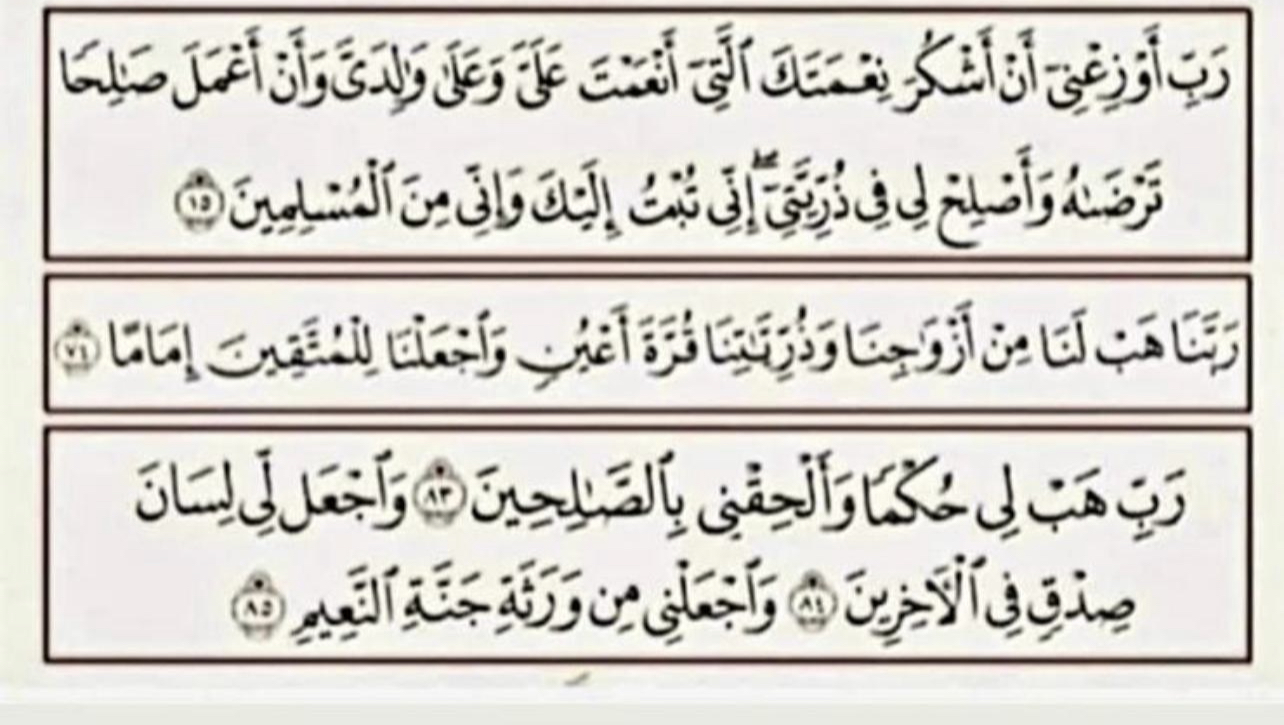 رَبِّ أَوْزِعْنِىٓ أَنْ أَشْكُرَ نِعْمَتَكَ ٱلَّتِىٓ أَنْعَمْتَ عَلَىَّ وَعَلَىٰ وَٰلِدَىَّ وَأَنْ أَعْمَلَ صَٰلِحًا
تَرْضَىٰهُ وَأَصْلِحْ لِى فِى ذُرِّيَّتِىٓ ۖ إِنِّى تُبْتُ إِلَيْكَ وَإِنِّى مِنَ ٱلْمُسْلِمِينَ ١٥
رَبَّنَا هَبْ لَنَا مِنْ أَزْوَٰجِنَا وَذُرِّيَّٰتِنَا قُرَّةَ أَعْيُنٍ وَٱجْعَلْنَا لِلْمُتَّقِينَ إِمَامًا ٧٤
رَبِّ هَبْ لِى حُكْمًا وَأَلْحِقْنِى بِٱلصَّٰلِحِينَ ٨٣ وَٱجْعَل لِّى لِسَانَ
صِدْقٍ فِى ٱلْأَخِرِينَ ٨٤ وَٱجْعَلْنِى مِن وَرَثَةِ جَنَّةِ ٱلنَّعِيمِ ٨٥